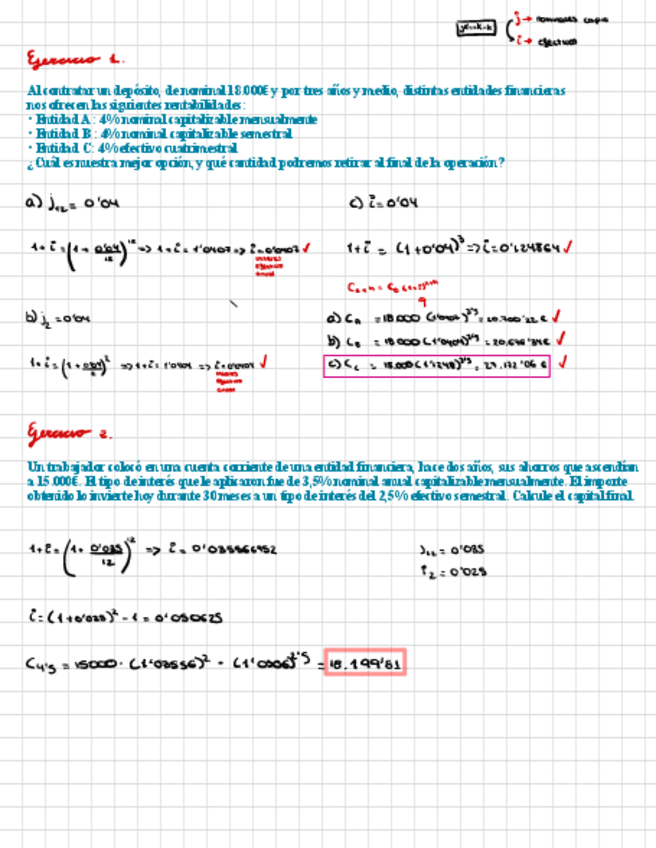 j → nominales
i → efectivos
Ejercicio 1.
Al contratar un depósito, de nominal 18.000€ y por tres años y medio, distintas entidades financieras
nos ofrecen las siguientes rentabilidades:
· Entidad A : 4% nominal capitalizable mensualmente
· Entidad B : 4% nominal capitalizable semestral
· Entidad C: 4% efectivo cuatrimestral
¿Cuál es nuestra mejor opción, y qué cantidad podremos retirar al final de la operación?
a) j₁₂ = 0'04
c) i = 0'04
1+i = (1 + 0'04/12)¹² => 1+i = 1'0407 => i = 0'0407 ✓
interés
efectivo
anual
1+i = (1+0'04)³ => i = 0'124864 ✓
b) j₂ = 0'04
1+i = (1 + 0'04/2)² => 1+i = 1'0404 => i = 0'0404 ✓
interés
efectivo
anual
a) C_A = 18.000 (1'0407)³'⁵ = 20.700'22 € ✓
b) C_B = 18.000 (1'0404)³'⁵ ✓
c) C_C = 18.000 (1'1248)³'⁵ = 27.172'06 € ✓
Ejercicio 2.
Un trabajador colocó en una cuenta corriente de una entidad financiera, hace dos años, sus ahorros que ascendían
a 15.000€. El tipo de interés que le aplicaron fue de 3,5% nominal anual capitalizable mensualmente. El importe
obtenido lo invierte hoy durante 30 meses a un tipo de interés del 2,5% efectivo semestral. Calcule el capital final.
1+i = (1 + 0'035/12)¹² => i = 0'035566952
j₁₂ = 0'035
i₂ = 0'025
i = (1+0'025)² - 1 = 0'050625
C₄'₅ = 15000 · (1'03556)² · (1'0506)²'⁵ = 18.199'81